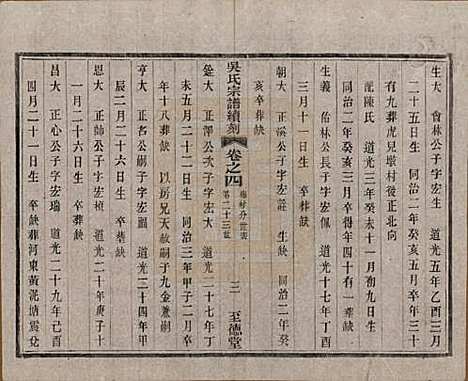 生大　會林公子字宏生　道光五年乙酉三月
二十五日生　同治二年癸亥五月卒年三十
有九葬虎兒墩村後正北向
配陳氏　道光三年癸未十一月初九日生
同治二年癸亥三月卒得年四十有一葬缺
生義　貽林公長子字宏佩　道光十七年丁酉
三月十一日生　卒葬缺
朝大　正溪公子字宏　生缺　同治二年癸
亥卒葬缺
吳氏宗譜續刻　卷之四　第二十三世　三　至德堂
銓大　正澤公次子字宏大　道光二十七年丁
未五月二十二日生　同治三年甲子二月卒
年十八葬缺　以房兄天赦嗣子九金兼嗣
亨大　正名公嗣子字宏　道光二十四年甲
辰二月二十六日生　卒葬缺
恩大　正帥公子字宏楨　道光二十年庚子十
月二十六日生　卒葬缺
昌大　正心公子字宏瑞　道光二十九年己酉
四月二十一日生　卒缺葬河東黃泥塘震兌